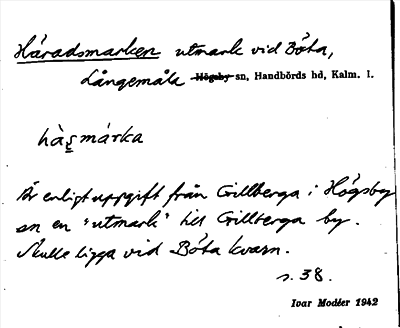 Häradsmarken utmark vid Böta,
Långemåla Högsby sn, Handbörds hd, Kalm. l.
hàʂmárka
Är enligt uppgift från Gillberga i Högsby
sn en "utmark" till Gillberga by.
Skulle ligga vid Böta kvarn.
s. 38.
Ivar Modéer 1942